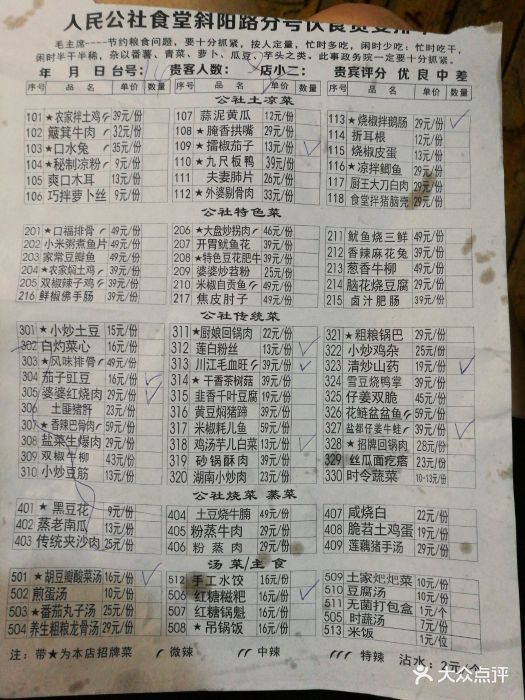 人民公社食堂斜阳路分号
毛主席----节约粮食问题，要十分抓紧，按人定量，忙时多吃，闲时少吃：忙时吃干，
闲时半干半稀，杂以番薯、青菜、萝卜、瓜豆、芋头之类。此事政务院一定要十分抓紧！
年 月 日 台号： 贵客人数： 店小二： 贵宾评分 优 良 中 差
序号 品名 单价 数量 序号 品名 单价 数量 序号 品名 单价 数量
公社土凉菜
101 ★农家拌土鸡 39元/份 107 蒜泥黄瓜 12元/份 113 ★烧椒拌鹅肠 29元/份
102 簸箕牛肉 32元/份 108 ★腌香拱嘴 29元/份 114 折耳根 12元/份
103 ★口水兔 35元/份 109 ★擂椒茄子 13元/份 115 烧椒皮蛋 13元/份
104 ★秘制凉粉 9元/份 110 ★九尺板鸭 39元/份 116 ★凉拌鲫鱼 29元/份
105 爽口木耳 13元/份 111 夫妻肺片 26元/份 117 厨王大刀白肉 29元/份
106 巧拌萝卜丝 9元/份 112 ★外婆剔骨肉 33元/份 118 食堂拌猪脑壳 29元/份
公社特色菜
201 ★口福排骨 49元/份 206 ★大盘炒拐肉 46元/份 211 鱿鱼烧三鲜 49元/份
202 小米粥煮鱼片 49元/份 207 开胃鱿鱼花 39元/份 212 香辣麻花兔 39元/份
203 家常豆瓣鱼 49元/份 208 ★特色豆花肥牛 39元/份 213 葱香牛柳 49元/份
204 ★农家焖土鸡 49元/份 209 婆婆炒苕粉 25元/份 214 脑花烧豆腐 29元/份
205 双椒辣子鸡 49元/份 210 米椒自贡鱼 49元/份 215 卤汁肥肠 39元/份
216 鲜椒佛手肠 39元/份 217 焦皮肘子 49元/份
公社传统菜
301 ★小炒土豆 15元/份 311 ★厨娘回锅肉 22元/份 321 ★粗粮锅巴 29元/份
302 白灼菜心 16元/份 312 莲白粉丝 13元/份 322 小炒鸡杂 25元/份
303 ★风味排骨 49元/份 313 川江毛血旺 39元/份 323 清炒山药 19元/份
304 茄子豇豆 16元/份 314 ★干香茶树菇 39元/份 324 雪豆烧鸭掌 39元/份
305 婆婆红烧肉 29元/份 315 韭香千叶豆腐 19元/份 325 仔姜双脆 45元/份
306 土匪猪肝 23元/份 316 黄豆焖猪蹄 39元/份 326 花鲢盆盆鱼 59元/份
307 ★香辣巴骨肉 59元/份 317 米椒耗儿鱼 59元/份 327 盐都仔姜牛蛙 39元/份
308 盐菜生爆肉 29元/份 318 鸡汤芋儿白菜 13元/份 328 ★招牌回锅肉 28元/份
309 双椒牛柳 43元/份 319 砂锅酥肉 39元/份 329 丝瓜面疙瘩 23元/份
310 小炒豆筋 13元/份 320 湖南小炒肉 23元/份 330 时令蔬菜 10-13元/份
公社烧菜 蒸菜
401 ★黑豆花 9元/份 404 土豆烧牛腩 49元/份 407 咸烧白 22元/份
402 蒸老南瓜 13元/份 405 粉蒸牛肉 29元/份 408 脆苕土鸡蛋 19元/份
403 传统夹沙肉 25元/份 406 粉蒸肉 29元/份 409 莲藕猪手汤 39元/份
汤菜/主食
501 ★胡豆瓣酸菜汤 16元/份 512 手工水饺 16元/份 509 土家粑粑菜 10元/份
502 煎蛋汤 10元/份 506 红糖糍粑 16元/份 510 豆腐汤 10元/份
503 ★番茄丸子汤 25元/份 507 红糖锅魁 16元/份 511 无菌打包盒 1元/个
504 养生粗粮龙骨汤 29元/份 508 ★吊锅饭 16元/份 505 时蔬汤 7元/份
513 米饭 1元/位
注：带★为本店招牌菜 微辣 中辣 特辣 沾水：2元/个
大众点评